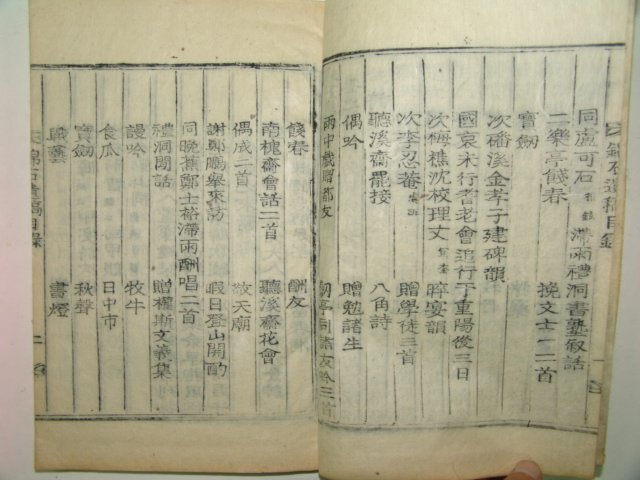 錦石遺稿目錄
同盧可石 滯雨禮洞書塾叙話
二樂亭餞春 挽文士一二首
寶劒
次磻溪金孝子建碑韻
國哀未行耆老會追行于重陽後三日
次梅樵沈校理文 晬宴韻
次李忍菴 贈學徒三首
聽溪齋罷接 八角詩
偶吟 贈勉諸生
雨中戱贈都友 亭同諸友吟三首
餞春 酬友
南槐齋會話二首 聽溪齋花會
偶成二首 敬天廟
謝朝鵬擧來訪 暇日登山開酌
同晚樵鄭士裕滯雨酬唱二首
禮洞閒話 贈權斯文羲集
謾吟 牧牛
食瓜 日中市
寶劒 秋聲
蠶藝 書燈
錦石遺稿目錄